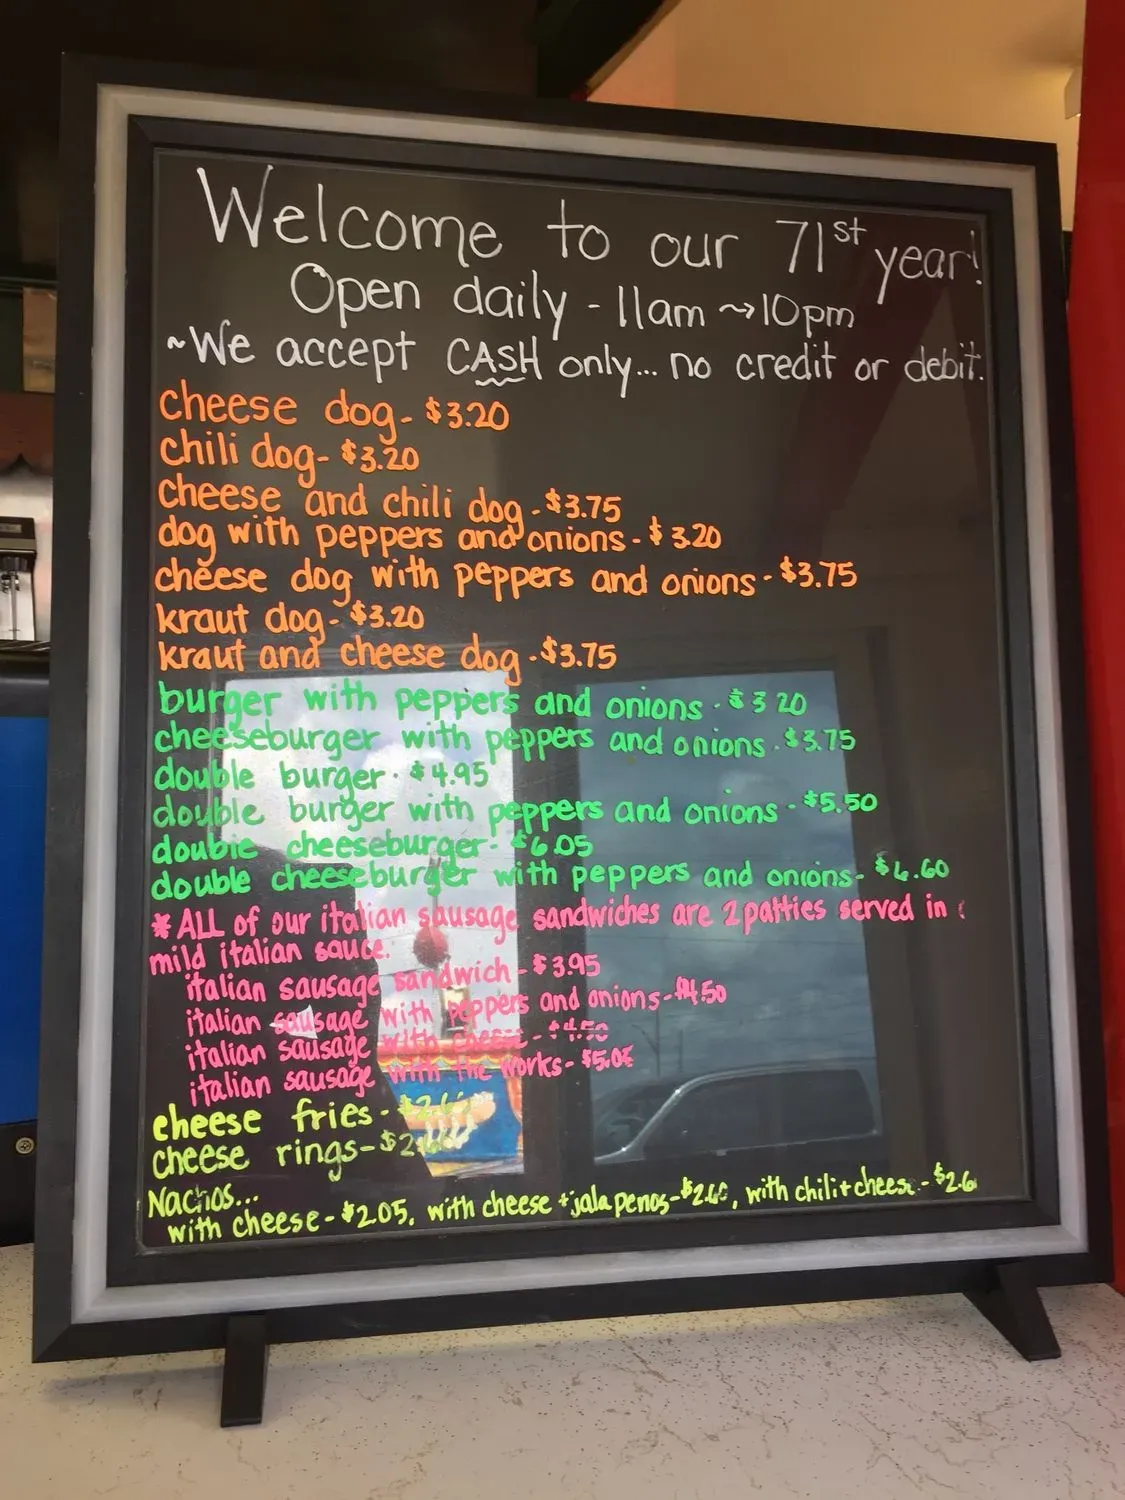 Welcome to our 71st year!
Open daily - 11am ~> 10pm
~We accept CASH only... no credit or debit.
cheese dog - $3.20
chili dog - $3.20
cheese and chili dog - $3.75
dog with peppers and onions - $3.20
cheese dog with peppers and onions - $3.75
kraut dog - $3.20
kraut and cheese dog - $3.75
burger with peppers and onions - $3.20
cheeseburger with peppers and onions - $3.75
double burger - $4.95
double burger with peppers and onions - $5.50
double cheeseburger - $6.05
double cheeseburger with peppers and onions - $6.60
* ALL of our italian sausage sandwiches are 2 patties served in
mild italian sauce.
italian sausage sandwich - $3.95
italian sausage with peppers and onions - $4.50
italian sausage with cheese - $4.50
italian sausage with the works - $5.05
cheese fries -
cheese rings -
Nachos...
with cheese - $2.05, with cheese + jalapenos - $2.60, with chili + cheese -